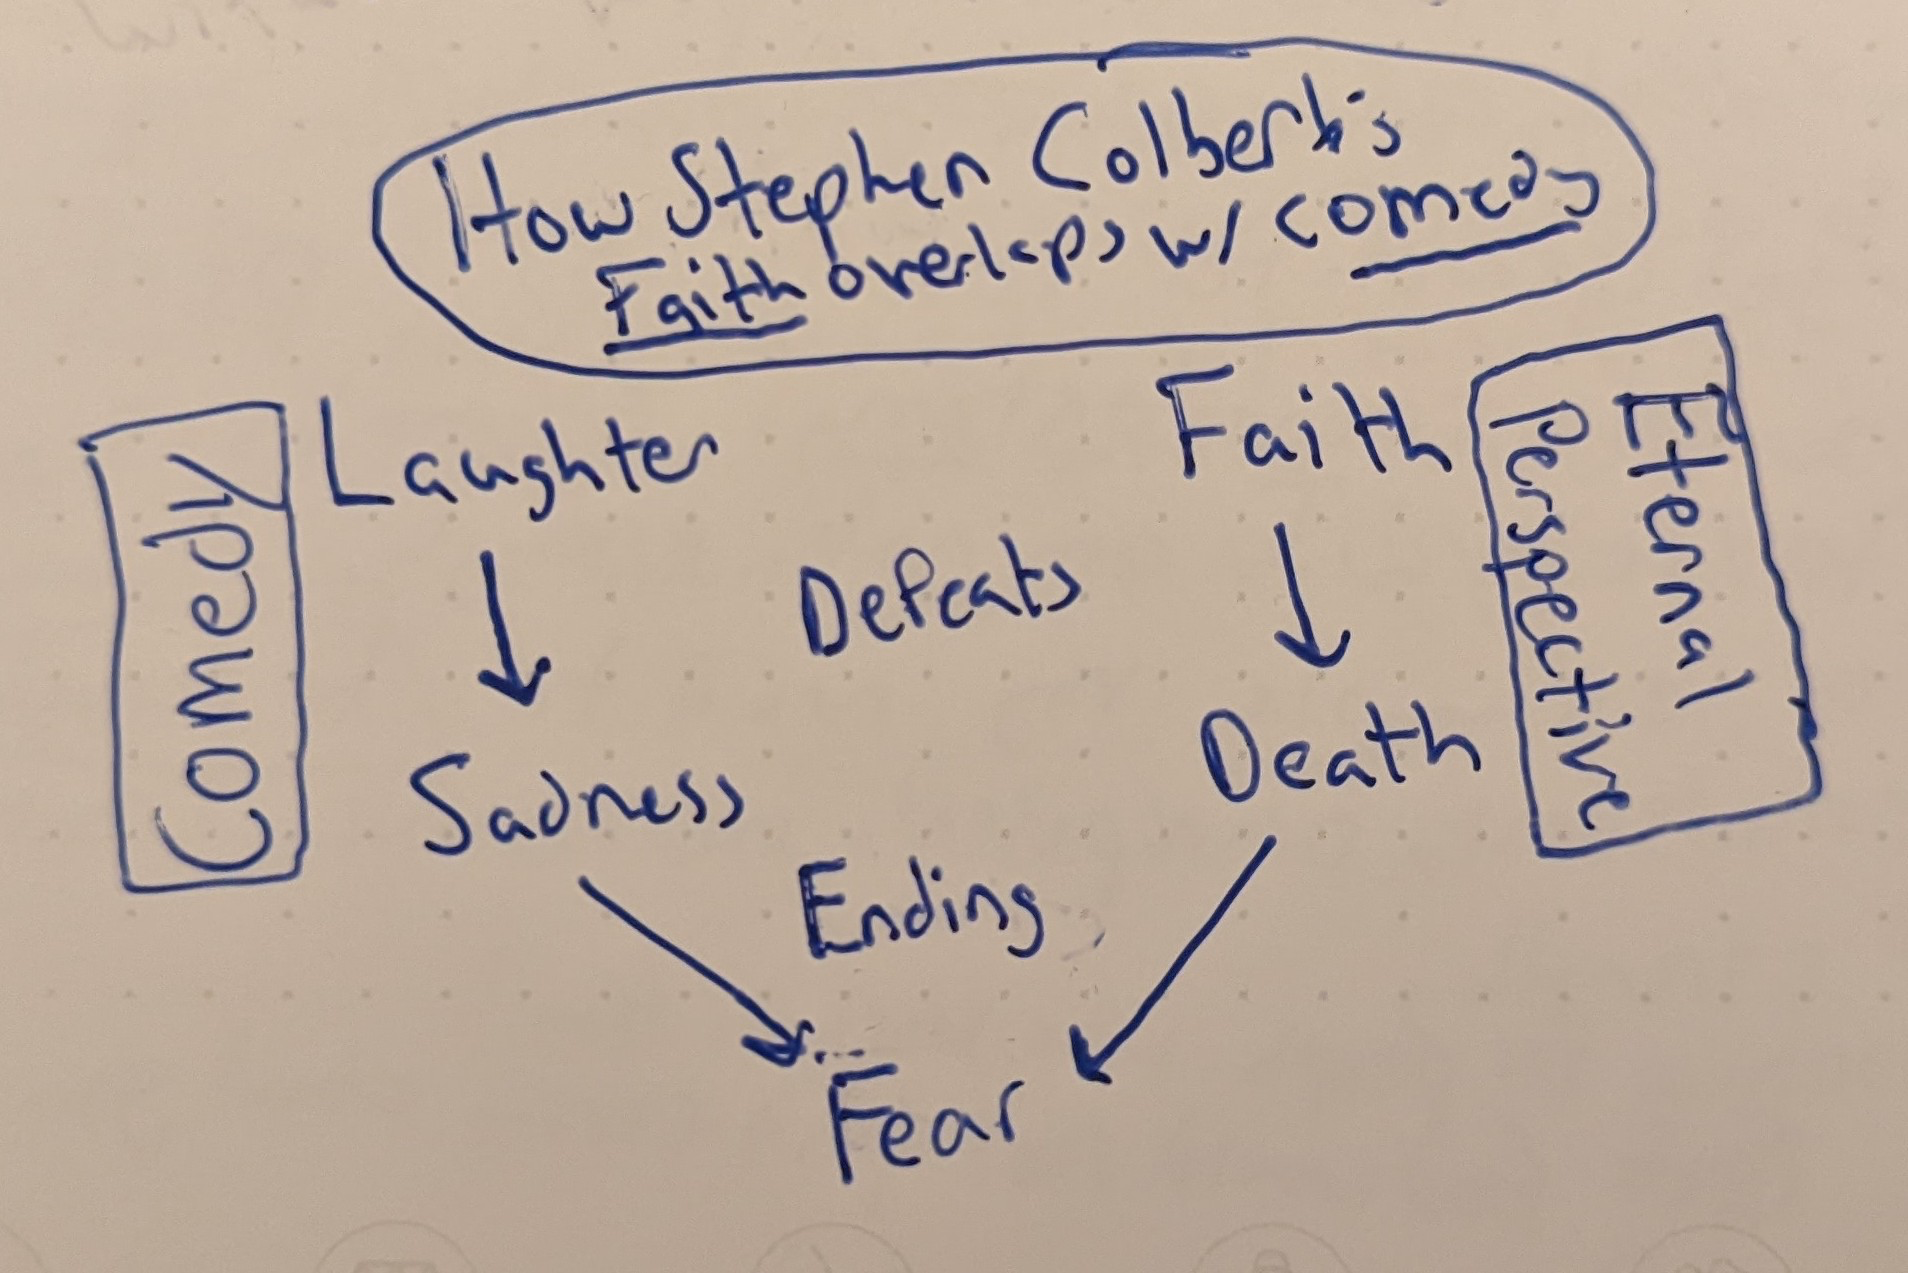 How Stephen Colbert's
Faith overlaps w/ comedy
Comedy
Laughter
Faith
Eternal
Perspective
Defeats
Sadness
Death
Ending
Fear